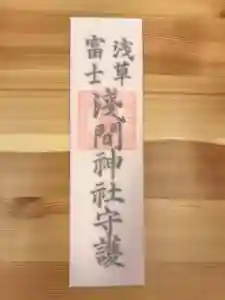 浅草
富士
淺間神社守護